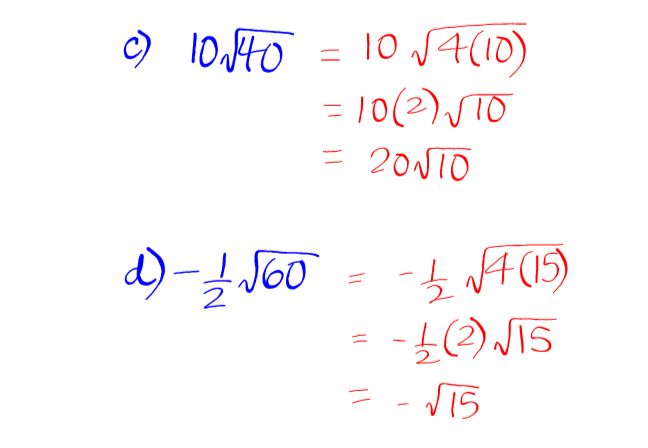 c) 10√40 = 10 √4(10)
= 10(2)√10
= 20√10
d) -1/2 √60 = -1/2 √4(15)
= -1/2 (2) √15
= -√15